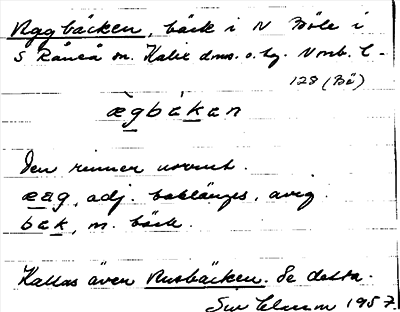 Aggbäcken, bäck i N Böle i
S Råneå sn. Kalix dms. o. hg. Norrb. l.
128 (Bö)
ægbɛkɛn
Den rinner norrut.
æag, adj. baklänges, avig.
bɛk, m. bäck.
Kallas även Rusbäcken. Se detta.
1957.